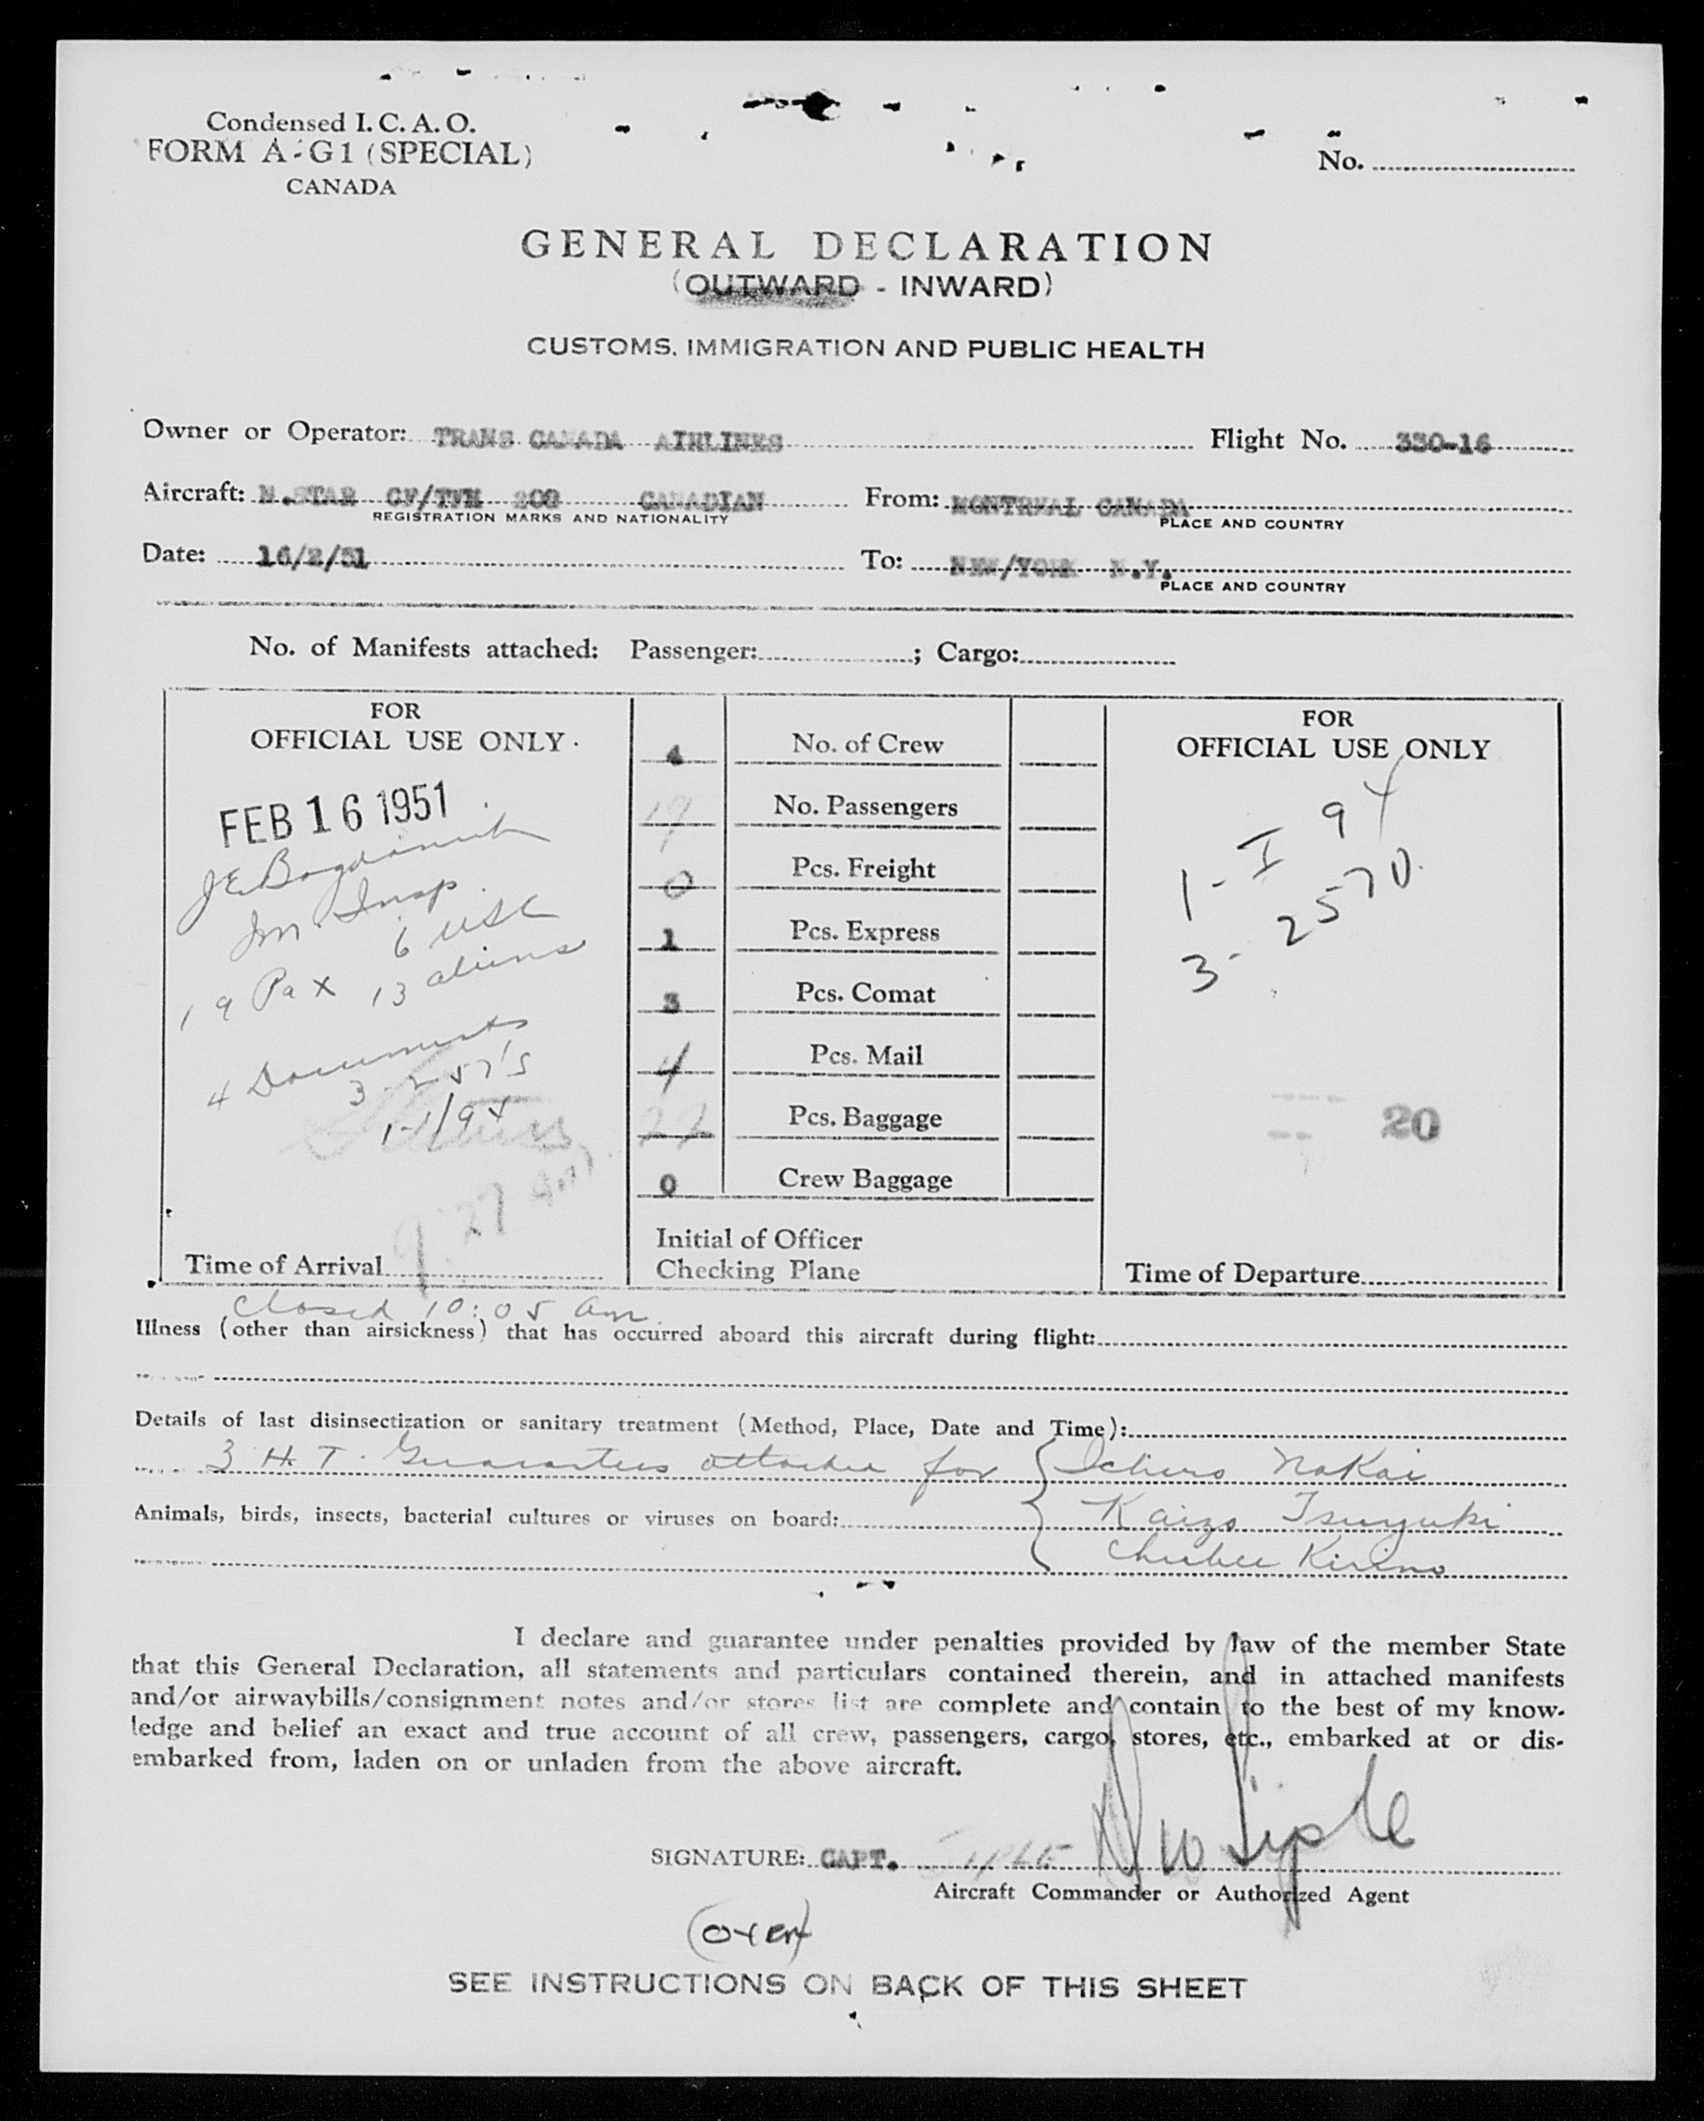 Condensed I. C. A. O.
FORM A-G1 (SPECIAL)
CANADA
No.
GENERAL DECLARATION
(OUTWARD - INWARD)
CUSTOMS, IMMIGRATION AND PUBLIC HEALTH
Owner or Operator: TRANS CANADA AIRLINES Flight No. 330-16
Aircraft: N.STAR CF/TFM 208 CANADIAN From: MONTREAL CANADA
REGISTRATION MARKS AND NATIONALITY PLACE AND COUNTRY
Date: 16/2/51 To: NEW/YORK N.Y.
PLACE AND COUNTRY
No. of Manifests attached: Passenger: ; Cargo:
FOR
OFFICIAL USE ONLY
FEB 16 1951
Im. Insp.
6 USC
19 Pax 13 aliens
4 Documents
3-257's
1-I94
9:27 am
Time of Arrival
4 No. of Crew
19 No. Passengers
0 Pcs. Freight
1 Pcs. Express
3 Pcs. Comat
4 Pcs. Mail
22 Pcs. Baggage
0 Crew Baggage
Initial of Officer
Checking Plane
FOR
OFFICIAL USE ONLY
1-I 94
3-257D.
20
Time of Departure
Closed 10:05 am
Illness (other than airsickness) that has occurred aboard this aircraft during flight:
Details of last disinsectization or sanitary treatment (Method, Place, Date and Time):
3 H.T. Guarantees attached for Ichiro Nakai
Animals, birds, insects, bacterial cultures or viruses on board: Kaizo Tsuyuki
Chubee Kirino
I declare and guarantee under penalties provided by law of the member State
that this General Declaration, all statements and particulars contained therein, and in attached manifests
and/or airwaybills/consignment notes and/or stores list are complete and contain to the best of my know-
ledge and belief an exact and true account of all crew, passengers, cargo, stores, etc., embarked at or dis-
embarked from, laden on or unladen from the above aircraft.
SIGNATURE: CAPT. SIPLE W Siple
Aircraft Commander or Authorized Agent
(over)
SEE INSTRUCTIONS ON BACK OF THIS SHEET